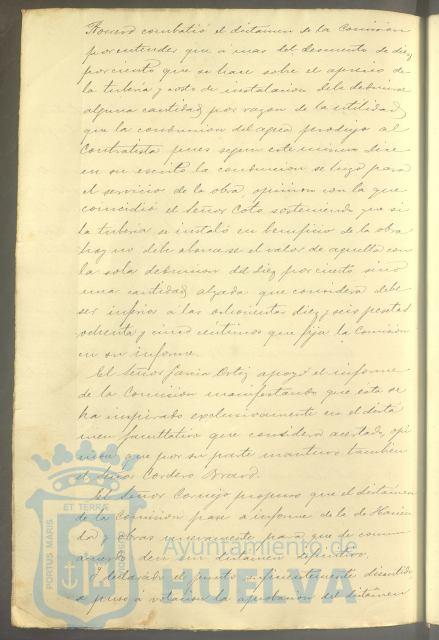 Romero combatió el dictamen de la Comisión
por entender que á mas del descuento de diez
por ciento que se hace sobre el aprecio de
la tuberia y costo de instalacion debe deducirse
alguna cantidad por razon de la utilidad
que la conduccion del agua produjo al
Contratista pues segun este mismo dice
en su escrito la conduccion se hizo para
el servicio de la obra, opinion con la que
coincidió el Señor Coto sosteniendo que si
la tuberia se instaló en beneficio de la obra
hoy no debe abonarse el valor de aquella con
la sola deduccion del diez por ciento sino
una cantidad alzada que considera debe
ser inferior á las ochocientas diez y seis pesetas
ochenta y cinco centimos que fija la Comisión
en su informe.
El Señor Garcia Ortiz apoyó el informe
de la Comisión manifestando que esta se
ha inspirado exclusivamente en el dicta
men facultativo que considera acertado, opi
nion que por su parte mantuvo tambien
el Señor Cordero Bravo.
El Señor Conejo propuso que el dictámen
de la Comisión pase á informe de la de Hacien
da y obras nuevamente para que de comun
acuerdo den su dictamen definitivo.
Y declarado el punto suficientemente discutido
se puso á votacion la aprobacion del dictámen
PORTUS MARIS
ET TERRÆ
Ayuntamiento de
HUELVA